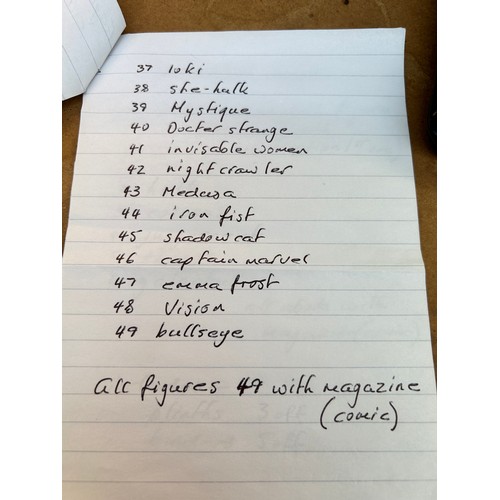 37 loki
38 she-hulk
39 Mystique
40 Docter strange
41 invisable women
42 nightcrawler
43 Medusa
44 iron fist
45 shadowcat
46 captain marvel
47 emma frost
48 Vision
49 bullseye
All figures 49 with magazine
(comic)